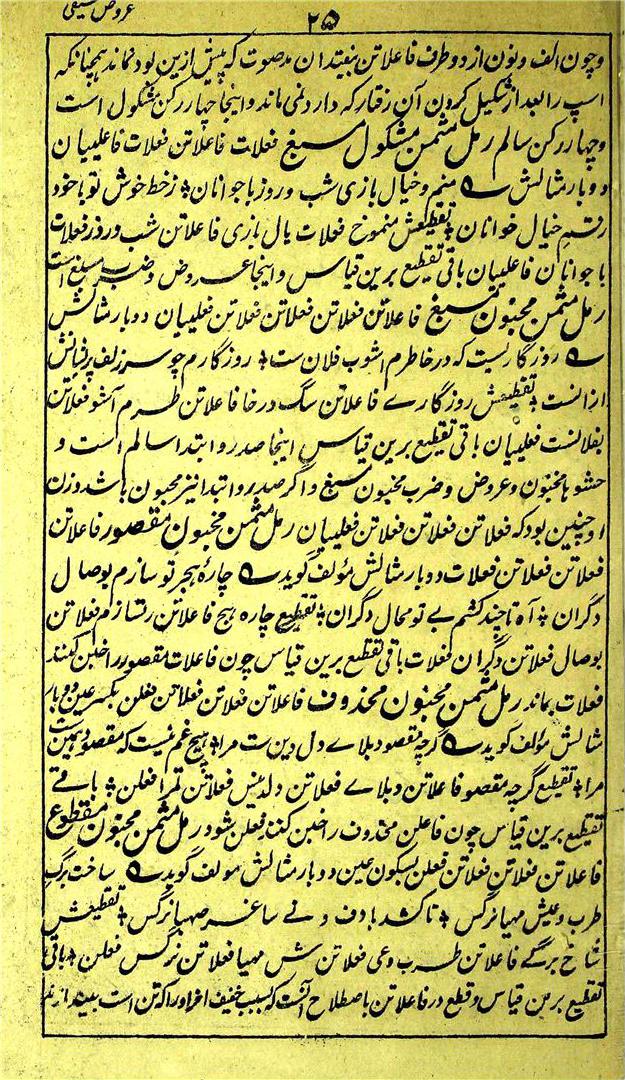 عروض سیفی
۲۵
و چون الف و نون از دو طرف فاعلاتن بیفتد آن مد صوت که پیش ازین بود نماند همچنانکه
اسپ را بعد از شکیل کردن آن رفتار که دارد نمی ماند و اینجا چهار رکن مشکول است
و چهار رکن سالم رمل مثمن مشکول مسبغ فعلات فاعلاتن فعلات فاعلییان
دوبار مثالش ؎ منم و خیال بازی شب و روز با جوانان ؛ ز خط خوش تو با خود
رقم خیال خوانان ؛ تقطیعش منموخ فعلات یال بازی فاعلاتن شب و روز فعلات
با جوانان فاعلییان باقی تقطیع برین قیاس و اینجا عروض و ضرب مسبغ است
رمل مثمن مخبون مسبغ فاعلاتن فعلاتن فعلاتن فعلییان دوبار مثالش
؎ روزگاریست که در خاطرم آشوب فلان ست ؛ روزگارم چو سر زلف پریشانش
ازانست ؛ تقطیعش روزگارے فاعلاتن ست که در خا فاعلاتن طرم آشو فعلاتن
بفلانست فعلییان باقی تقطیع برین قیاس اینجا صدر و ابتدا سالم است و
حشوها مخبون و عروض و ضرب مخبون مسبغ و اگر صدر و ابتدا نیز مخبون باشد وزن
او چنین بود که فعلاتن فعلاتن فعلاتن فعلییان رمل مثمن مخبون مقصور فاعلاتن
فعلاتن فعلاتن فعلات دوبار مثالش مؤلف گوید ؎ چارهٔ هجر تو سازم بوصال
دگران ؛ آه تا چند کشم بے تو محال دگران ؛ تقطیع چاره هج فاعلاتن ر تسازم فعلاتن
بوصال فعلاتن دگران فعلات باقی تقطیع برین قیاس چون فاعلات مقصور را خبن کنند
فعلات بماند رمل مثمن مخبون محذوف فاعلاتن فعلاتن فعلاتن فعلن بکسر عین دوبار
مثالش مؤلف گوید ؎ گرچه مقصود بلاے دل دین ست مرا ؛ هیچ غم نیست که مقصود همین ست
مرا ؛ تقطیع گرچه مقصو فاعلاتن دبلاے فعلاتن دلدینس فعلاتن تمرا فعلن ؛ باقے
تقطیع برین قیاس چون فاعلن محذوف را خبن کنند فعلن شود رمل مثمن مخبون مقطوع
فاعلاتن فعلاتن فعلاتن فعلن بسکون عین دوبار مثالش مولف گوید ؎ ساخت برگ
طرب و عیش مهیا نرگس ؛ تا کشد با دف و نے ساغر صهبا نرگس ؛ تقطیعش
ساخ برگے فاعلاتن طرب و عی فعلاتن ش مهیا فعلاتن نرگس فعلن ؛ باقی
تقطیع برین قیاس و قطع در فاعلاتن باصطلاح آنست که سبب خفیف آخر او را که تن است بیندازند